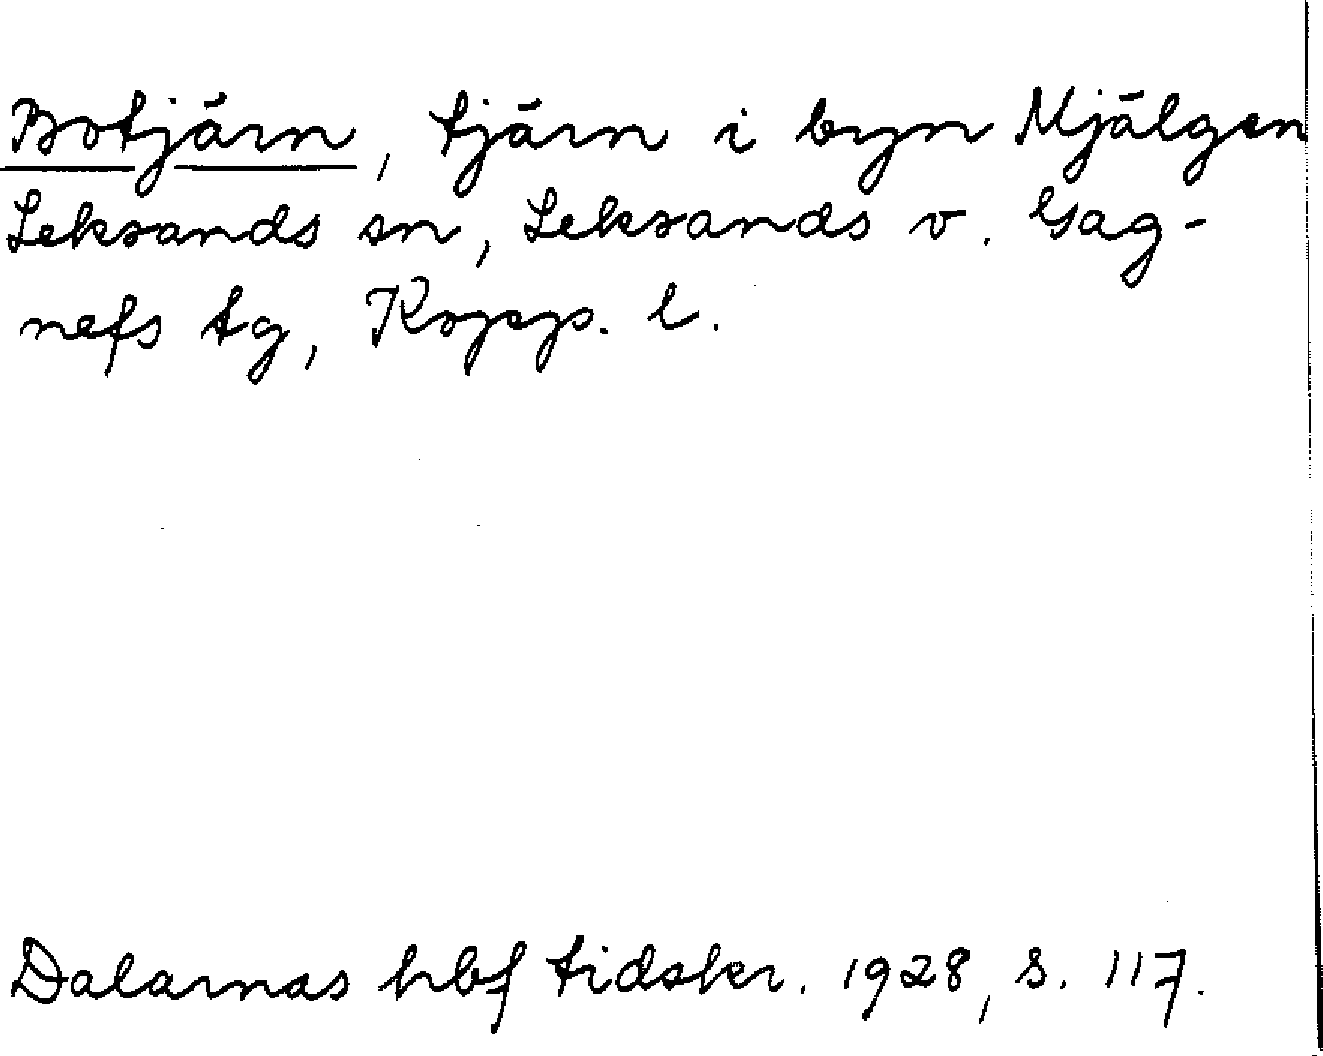 Botjärn, tjärn i byn Mjälgen
Leksands sn, Leksands v. Gag-
nefs tg, Kopp. l.
Dalarnas hbf tidskr. 1928, s. 117.